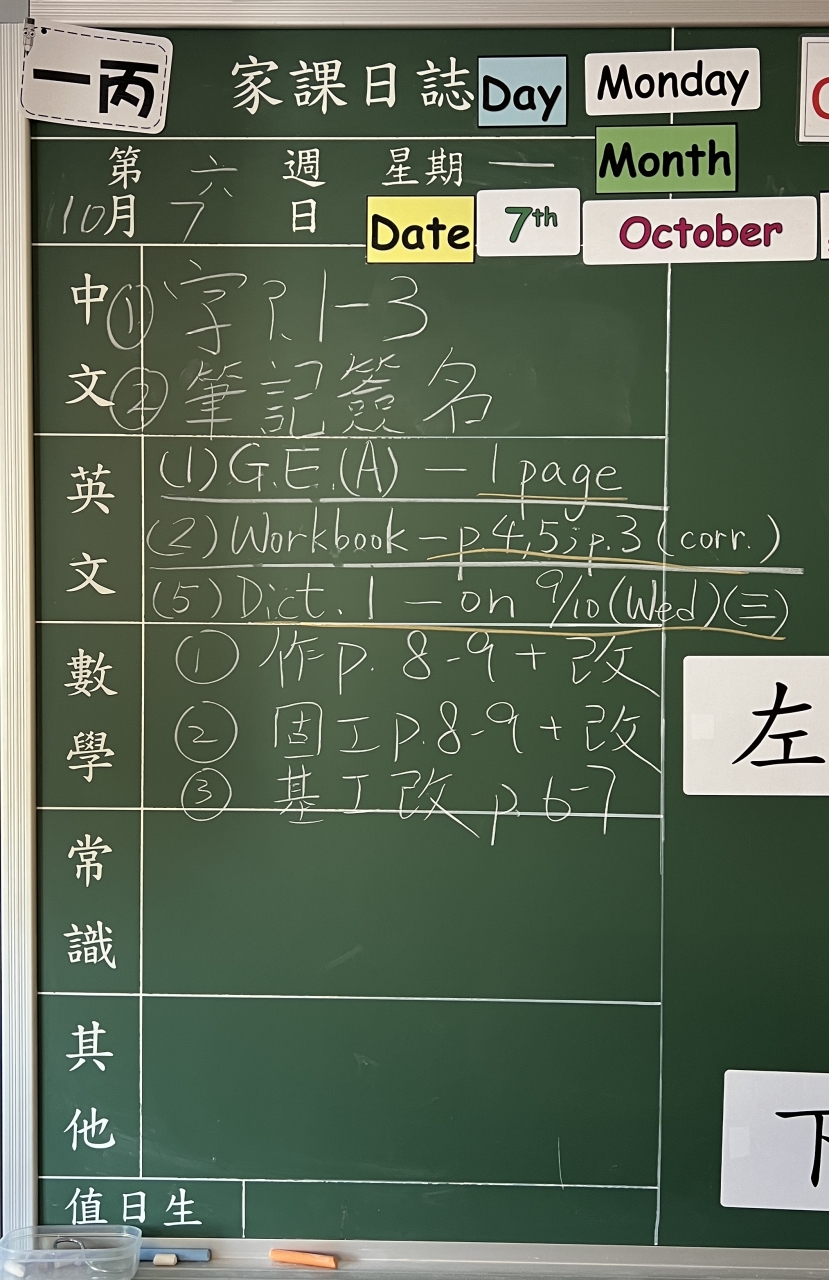 一丙 家課日誌 Day Monday
第六週 星期一 Month
10月7日 Date 7th October
中文 ① 字 P.1-3
② 筆記簽名
英文 (1) G.E.(A) — 1 page
(2) Workbook — p.4,5; p.3 (corr.)
(5) Dict. 1 — on 9/10 (Wed)(三)
數學 ① 作 p. 8-9 + 改
② 固工 p.8-9 + 改
③ 基工改 p.6-7
左
常識
其他
下
值日生